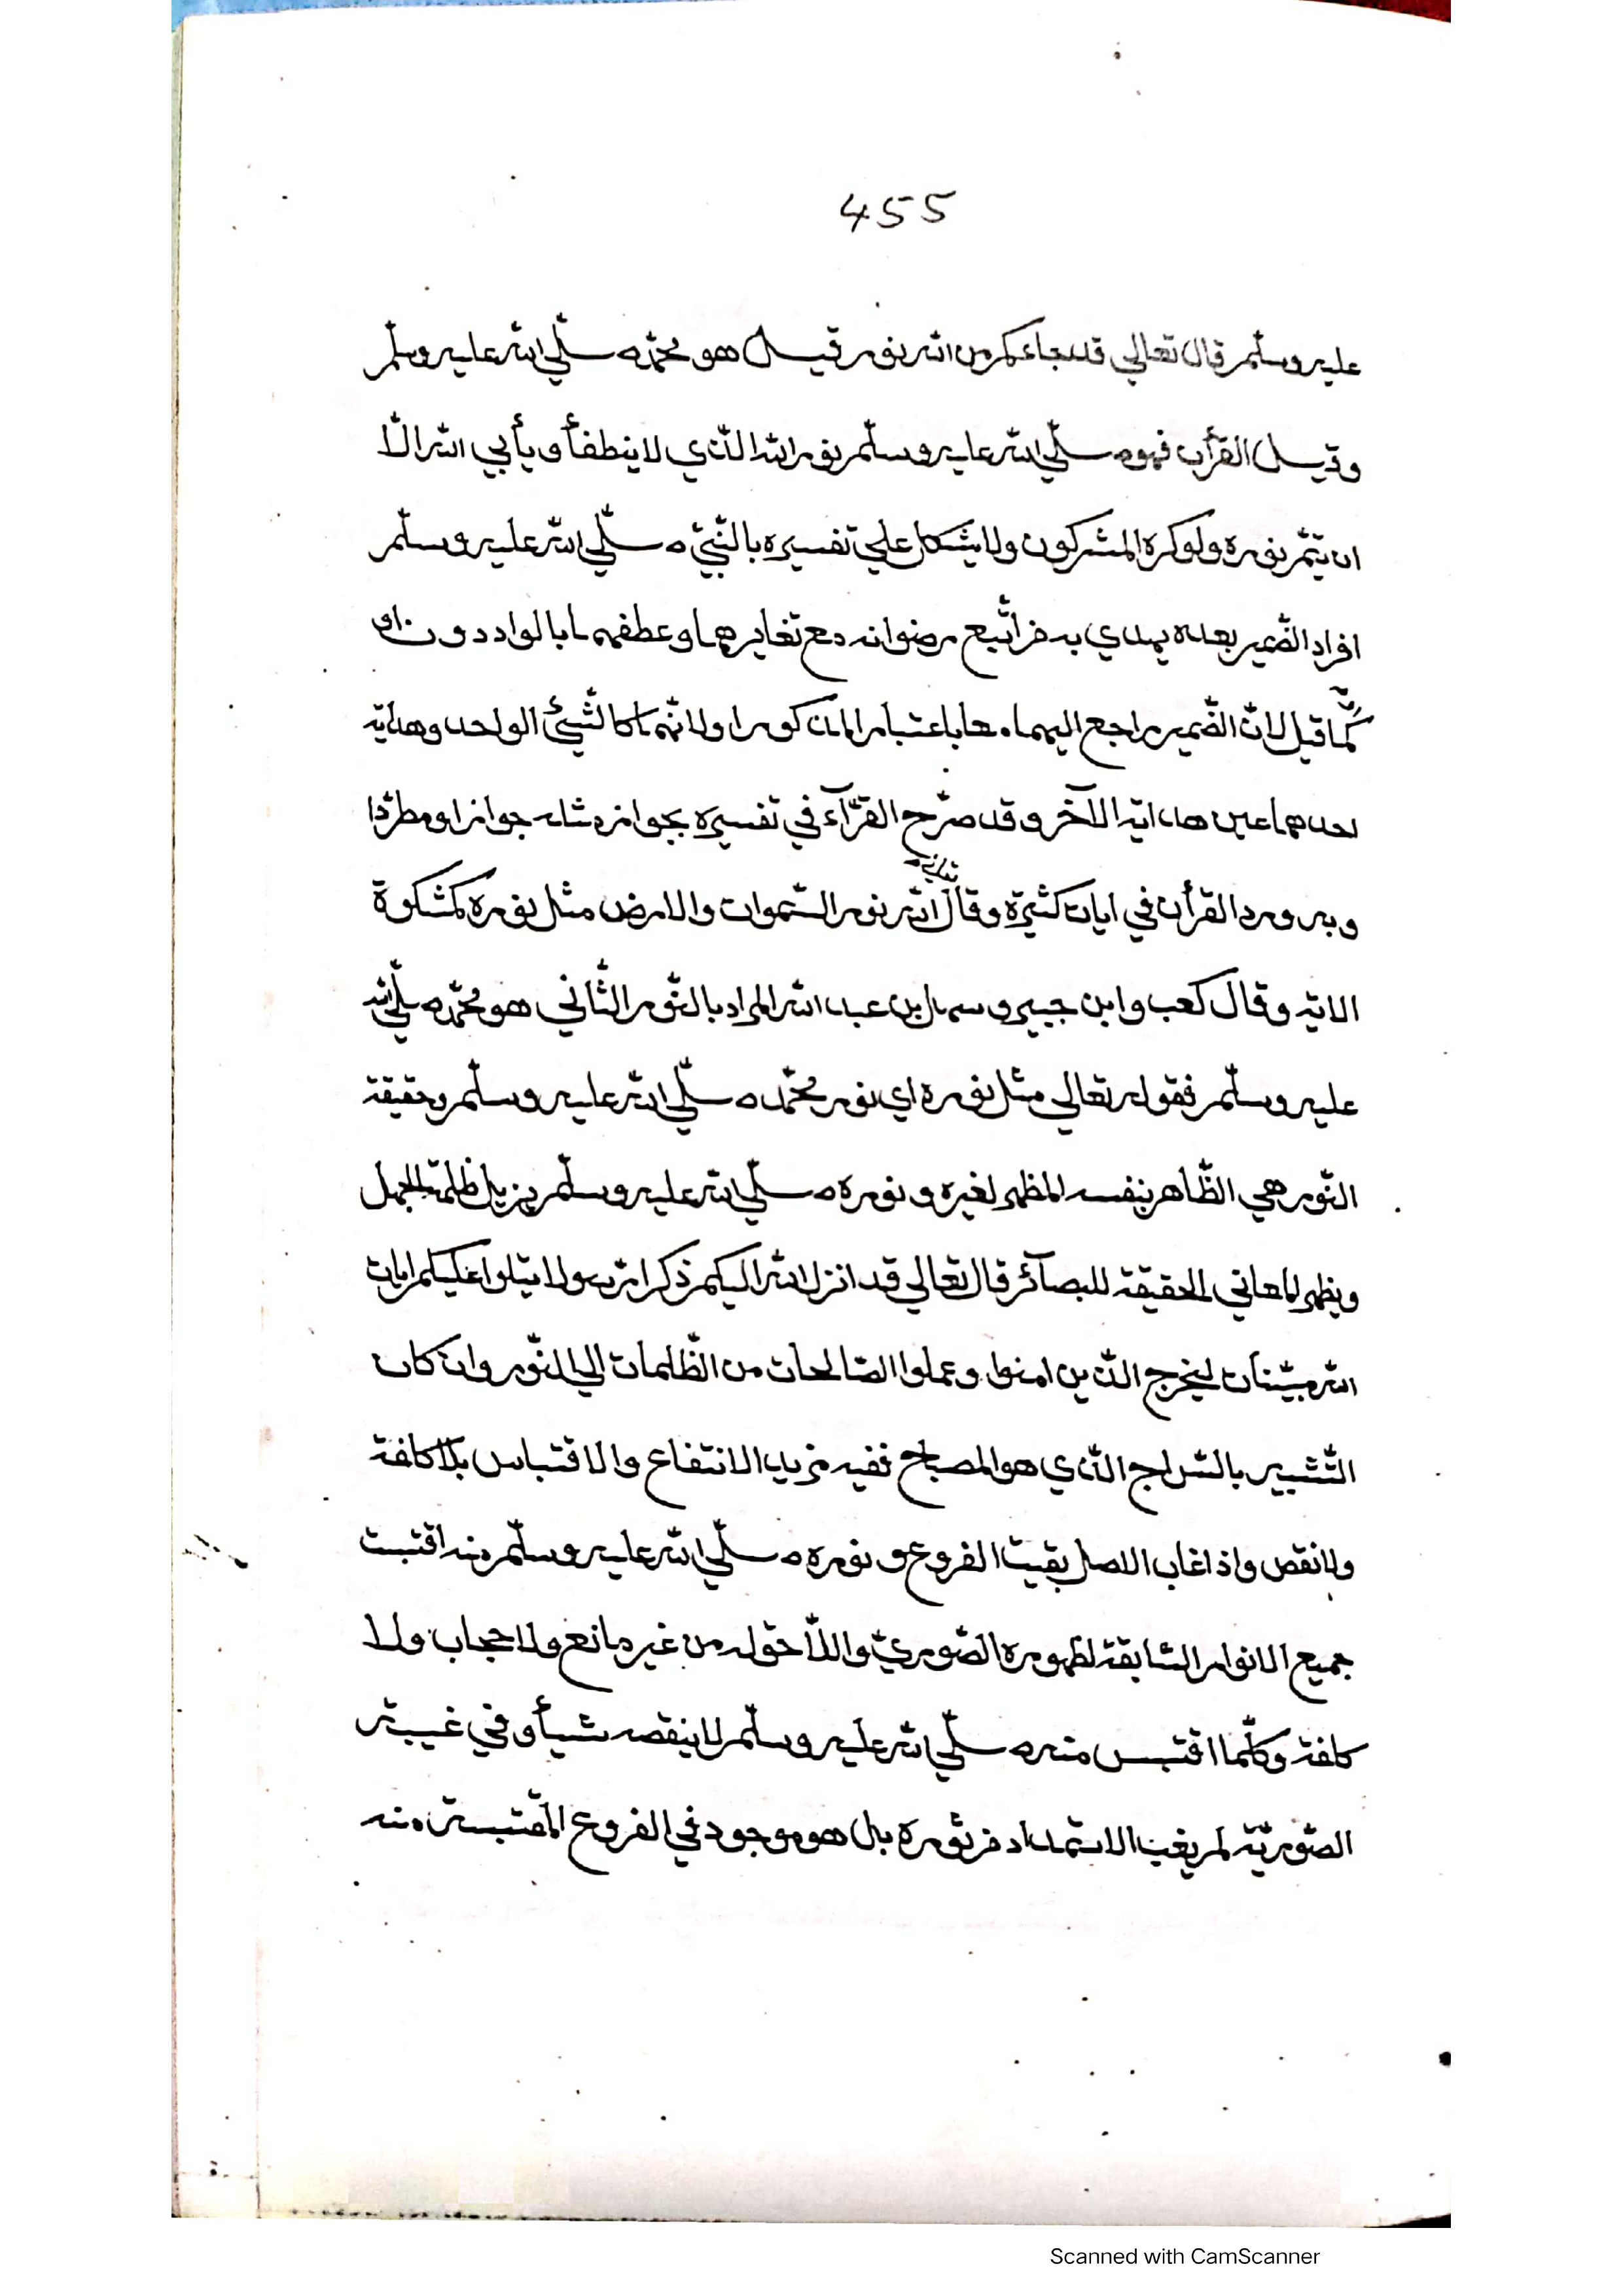 455
عليه وسلّم قال تعالي قد جاءكم من الله نور قيل هو محمّد صلّي الله عليه وسلّم
وقيل القرأن فهو صلّي الله عليه وسلّم نور الله الّذي لا ينطفأ ويأبي الله الّا
ان يتمّ نوره ولو كره المشركون ولا يشكل علي تفسيره بالنّبيّ صلّي الله عليه وسلّم
افراد الضّمير بعده يهدي به من اتّبع رضوانه مع تغايرهما وعطفهما بالواو دون او
كما قيل لانّ الضّمير راجع اليهما معا باعتبار المذكور او لانّهما كالشّيئ الواحد وهداية
احدهما عين هداية الآخر وقد صرّح الفرّآء في تفسيره بجواز مثله جوازا ومطرّدا
وبه ورد القرأن في ايات كثيرة وقال تعالي الله نور السّموات والارض مثل نوره كمشكوة
الاية وقال كعب وابن جبير وسهل بن عبد الله المراد بالنّور الثّاني هو محمّد صلّي الله
عليه وسلّم فقوله تعالي مثل نوره اي نور محمّد صلّي الله عليه وسلّم وحقيقة
النّور هي الظّاهر بنفسه المظهر لغيره ونوره صلّي الله عليه وسلّم يزيل ظلمة الجهل
ويظهر المعاني الحقيقة للبصآئر قال تعالي قد انزل الله اليكم ذكرا رسولا يتلوا عليكم ايات
الله مبيّنات ليخرج الّذين امنوا وعملوا الصّالحات من الظّلمات الي النّور وان كان
التّشبيه بالسّراج الّذي هو المصباح ففيه مزيد الانتفاع والاقتباس بلا كلفة
ولا نقص واذا غاب الاصل بقيت الفروع ونوره صلّي الله عليه وسلّم منه اقتبست
جميع الانوار السّابقة لظهوره الصّوريّ واللّاحقة له من غير مانع ولا حجاب ولا
كلفة وكلّما اقتبس منه صلّي الله عليه وسلّم لا ينقصه شيأ وفي غيبته
الصّوريّة لم يغب الاستمداد من نوره بل هو موجود في الفروع المقتبسة منه
Scanned with CamScanner